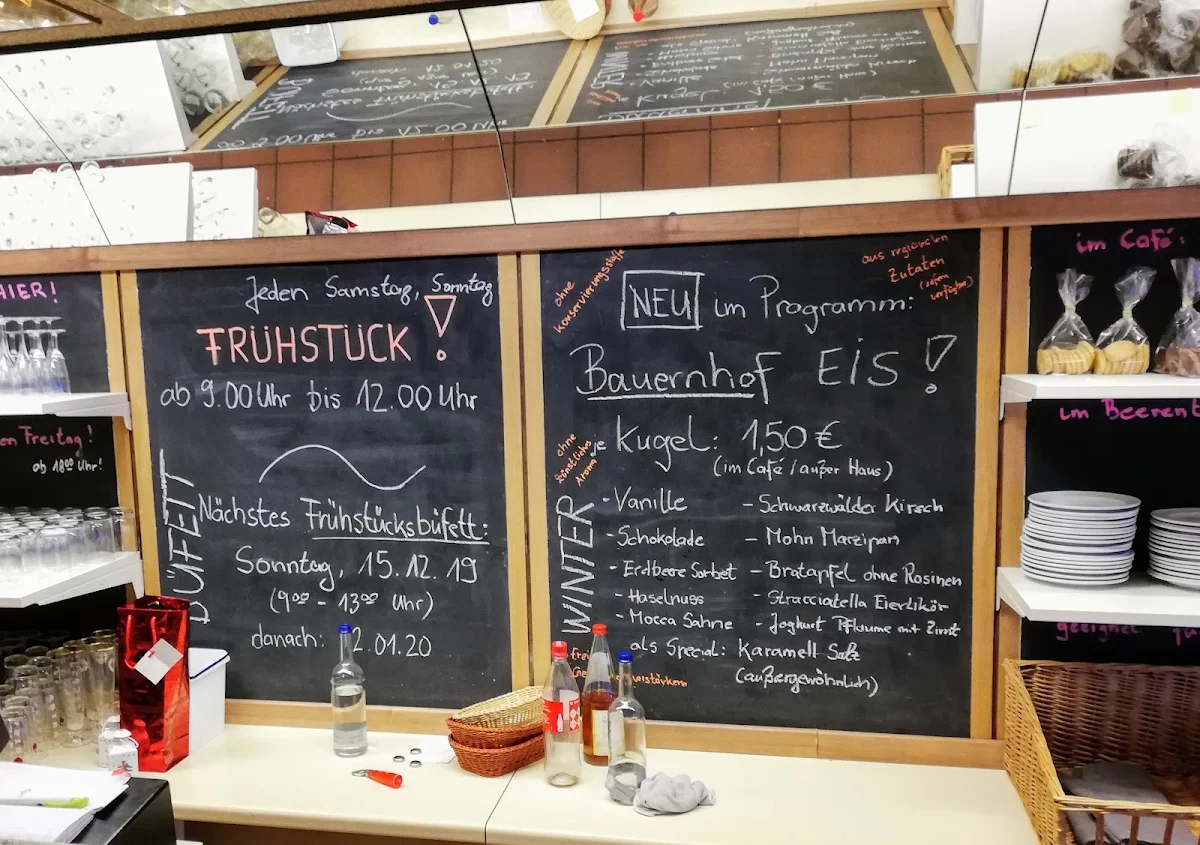 HIER!
en Freitag!
ab 18⁰⁰ Uhr!
Jeden Samstag, Sonntag
FRÜHSTÜCK!
ab 9.00 Uhr bis 12.00 Uhr
BÜFETT
Nächstes Frühstücksbüfett:
Sonntag, 15.12.19
(9⁰⁰ - 13⁰⁰ Uhr)
danach: 2.01.20
ohne
Konservierungsstoffe
aus regionalen
Zutaten
(sofern
verfügbar)
NEU im Programm:
Bauernhof EIS!
je Kugel: 1,50 €
(im Café / außer Haus)
ohne
künstliches
Aroma
WINTER
- Vanille
- Schokolade
- Erdbeere Sorbet
- Haselnuss
- Mocca Sahne
- Schwarzwälder Kirsch
- Mohn Marzipan
- Bratapfel ohne Rosinen
- Stracciatella Eierlikör
- Joghurt Pflaume mit Zimt
als Special: Karamell Salz
(außergewöhnlich)
verstärkern
im Café:
im Beerent
geeignet